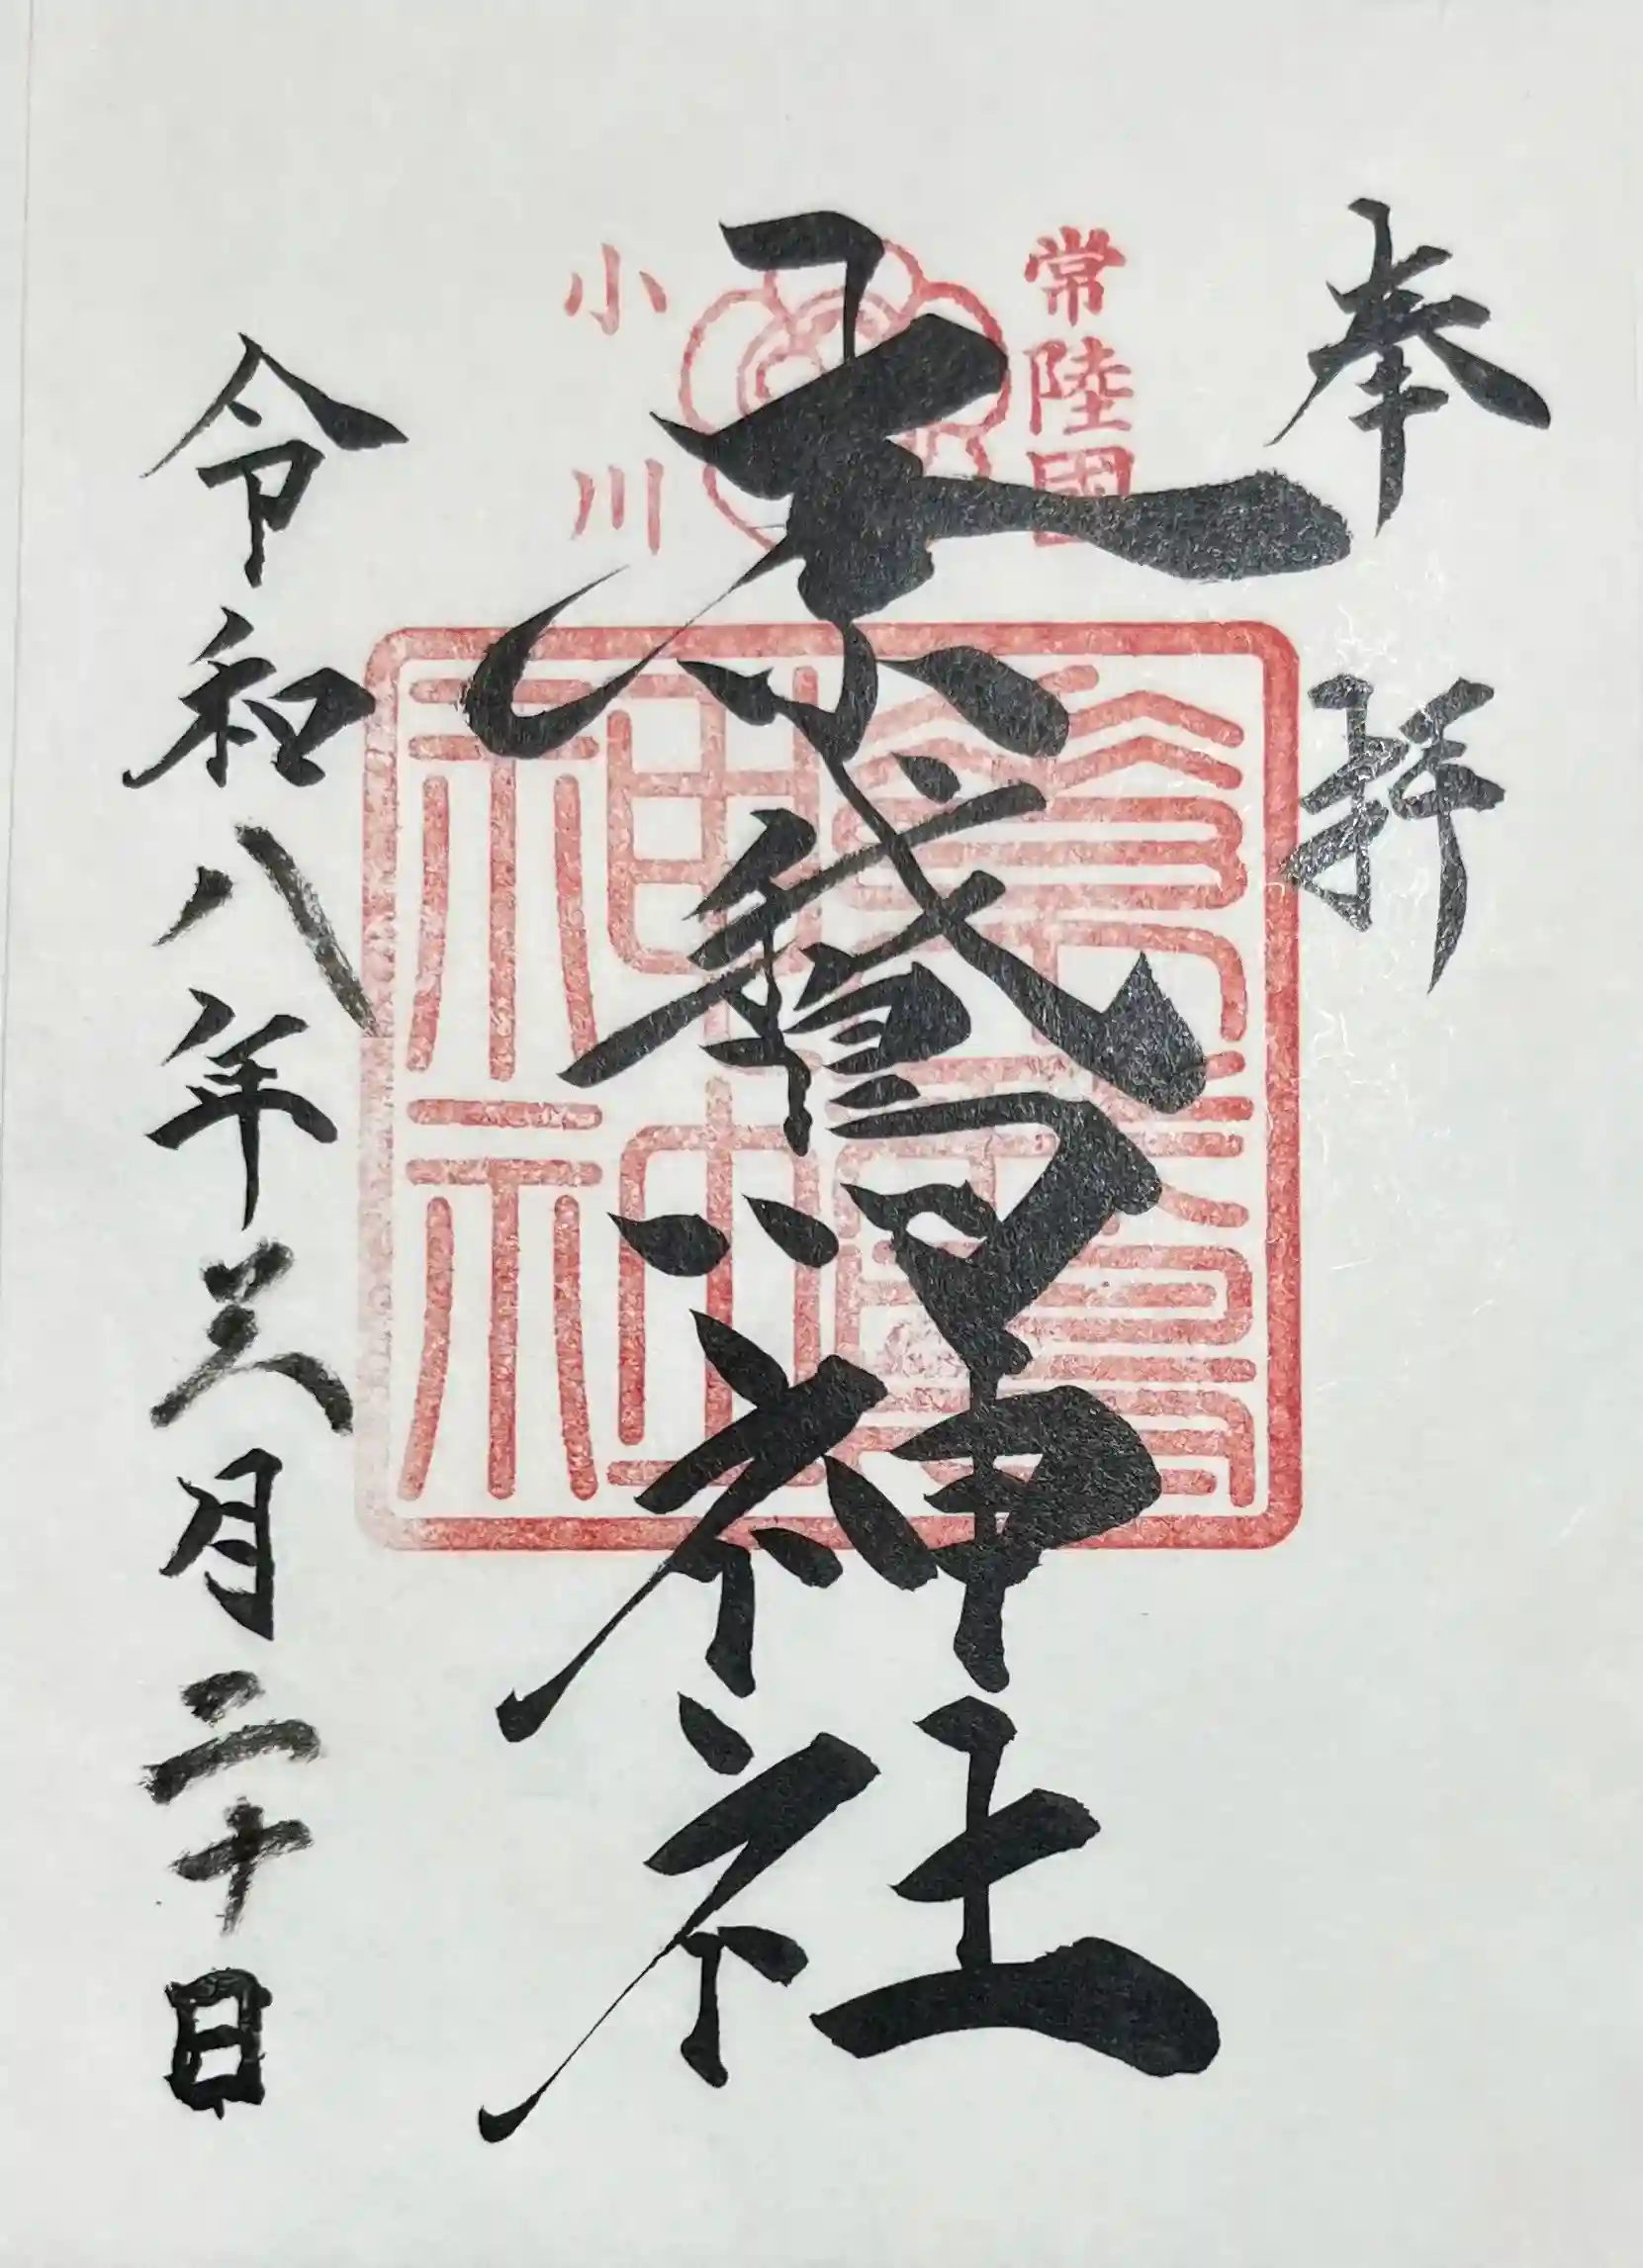 奉拝
常陸國
素鵞神社
小川
令和八年三月二十日